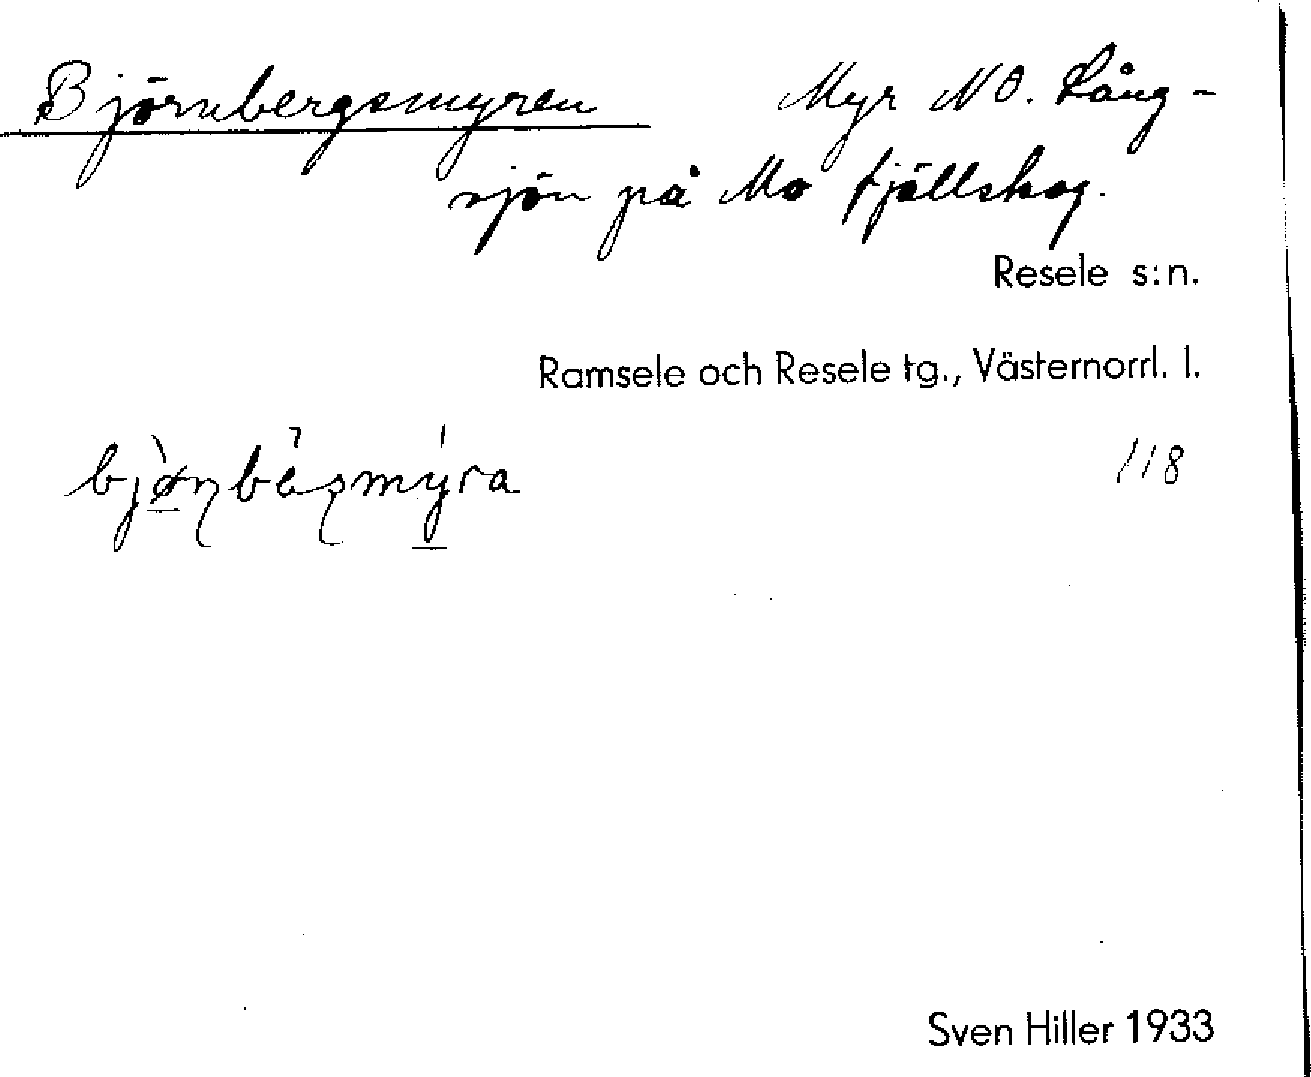 Björnbergsmyren Myr NO. Lång-
sjön på Mo fjällskog.
Resele s:n.
Ramsele och Resele tg., Västernorrl. l.
118
Sven Hiller 1933